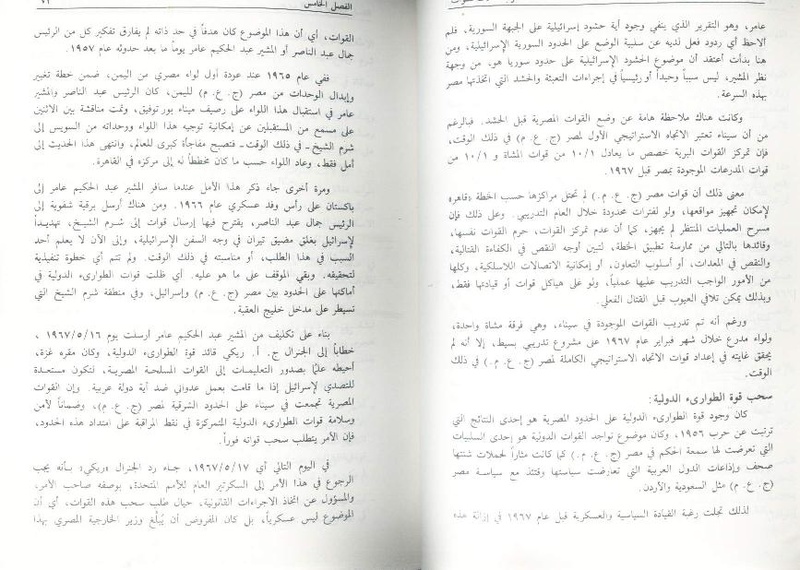 عامر، وهو التقرير الذي ينفي وجود أية حشود إسرائيلية على الجبهة السورية، فلم
ألاحظ أي ردود فعل لديه عن سلبية الوضع على الحدود السورية الإسرائيلية، ومن
هنا بدأت أعتقد أن موضوع الحشود الإسرائيلية على حدود سوريا هو، من وجهة
نظر المشير، ليس سبباً وحيداً أو رئيسياً في إجراءات التعبئة والحشد التي اتخذتها مصر
بهذه السرعة.
وكانت هناك ملاحظة هامة عن وضع القوات المصرية قبل الحشد. فبالرغم
من أن سيناء تعتبر الاتجاه الاستراتيجي الأول لمصر (ج. ع. م) في ذلك الوقت،
فإن تمركز القوات البرية خصص ما يعادل ١٠/١ من قوات المشاة و ١٠/١ من
قوات المدرعات الموجودة بمصر قبل ١٩٦٧.
معنى ذلك أن قوات مصر (ج. ع. م.) لم تحتل مراكزها حسب الخطة «قاهر»
لإمكان تجهيز مواقعها، ولو لفترات محدودة خلال العام التدريبي. وعلى ذلك فإن
مسرح العمليات المنتظر لم يجهز، كما أن عدم تمركز القوات، حرم القوات نفسها،
وقادتها بالتالي من ممارسة تطبيق الخطة، لتبين أوجه النقص في الكفاءة القتالية،
والنقص في المعدات، أو أسلوب التعاون، أو إمكانية الاتصالات اللاسلكية، وكلها
من الأمور الواجب التدريب عليها عملياً، ولو على هياكل قوات أو قيادتها فقط،
وبذلك يمكن تلافي العيوب قبل القتال الفعلي.
ورغم أنه تم تدريب القوات الموجودة في سيناء، وهي فرقة مشاة واحدة،
ولواء مدرع خلال شهر فبراير عام ١٩٦٧ على مشروع تدريبي بسيط، إلا أنه لم
يحقق غايته في إعداد قوات الاتجاه الاستراتيجي الكاملة لمصر (ج. ع. م.) في ذلك
الوقت.
سحب قوة الطوارىء الدولية:
كان وجود قوة الطوارىء الدولية على الحدود المصرية هو إحدى النتائج التي
ترتبت عن حرب ١٩٥٦، وكان موضوع تواجد القوات الدولية هو إحدى السلبيات
التي تعرضت لها سمعة الحكم في مصر (ج. ع. م.) كما كانت مثاراً لحملات شنتها
صحف وإذاعات الدول العربية التي تعارضت سياستها وقتئذ مع سياسة مصر
(ج. ع. م) مثل السعودية والأردن.
لذلك تجلت رغبة القيادة السياسية والعسكرية قبل عام ١٩٦٧ في إزالة هذه
الفصل الخامس ٧١
القوات، أي أن هذا الموضوع كان هدفاً في حد ذاته لم يفارق تفكير كل من الرئيس
جمال عبد الناصر أو المشير عبد الحكيم عامر يوماً ما بعد حدوثه عام ١٩٥٧.
ففي عام ١٩٦٥ عند عودة أول لواء مصري من اليمن، ضمن خطة تغيير
وإبدال الوحدات من مصر (ج. ع. م) لليمن، كان الرئيس عبد الناصر والمشير
عامر في استقبال هذا اللواء على رصيف ميناء بور توفيق، وتمت مناقشة بين الاثنين
على مسمع من المستقبلين عن إمكانية توجيه هذا اللواء ووحداته من السويس إلى
شرم الشيخ ـ في ذلك الوقت ـ فتصبح مفاجأة كبرى للعالم، وانتهى هذا الحديث إلى
أمل فقط، وعاد اللواء حسب ما كان مخططاً له إلى مركزه في القاهرة.
ومرة أخرى جاء ذكر هذا الأمل عندما سافر المشير عبد الحكيم عامر إلى
باكستان على رأس وفد عسكري عام ١٩٦٦. ومن هناك أرسل برقية شفوية إلى
الرئيس جمال عبد الناصر، يقترح فيها إرسال قوات إلى شرم الشيخ، تهديداً
لإسرائيل بغلق مضيق تيران في وجه السفن الإسرائيلية، وإلى الآن لا يعلم أحد
السبب في هذا الطلب، أو مناسبته في ذلك الوقت. ولم تتم أي خطوة تنفيذية
لتحقيقه. وبقي الموقف على ما هو عليه. أي ظلت قوات الطوارىء الدولية في
أماكنها على الحدود بين مصر (ج. ع. م) وإسرائيل، وفي منطقة شرم الشيخ التي
تسيطر على مدخل خليج العقبة.
بناء على تكليف من المشير عبد الحكيم عامر أرسلت يوم ١٩٦٧/٥/١٦،
خطاباً إلى الجنرال ج. أ. ريكي قائد قوة الطوارىء الدولية، وكان مقره غزة،
أحيطه علماً بصدور التعليمات إلى القوات المسلحة المصرية، لتكون مستعدة
للتصدي لإسرائيل إذا ما قامت بعمل عدواني ضد أية دولة عربية. وإن القوات
المصرية تجمعت في سيناء على الحدود الشرقية لمصر (ج. ع. م)، وضماناً لأمن
وسلامة قوات الطوارىء الدولية المتمركزة في نقط المراقبة على امتداد هذه الحدود،
فإن الأمر يتطلب سحب قواته فوراً.
في اليوم التالي أي ١٩٦٧/٥/١٧، جاء رد الجنرال «ريكي» بأنه يجب
الرجوع في هذا الأمر إلى السكرتير العام للأمم المتحدة، بوصفه صاحب الأمر،
والمسؤول عن اتخاذ الاجراءات القانونية، حيال طلب سحب هذه القوات، أي أن
الموضوع ليس عسكرياً، بل كان المفروض أن يُبلّغ وزير الخارجية المصري بهذا